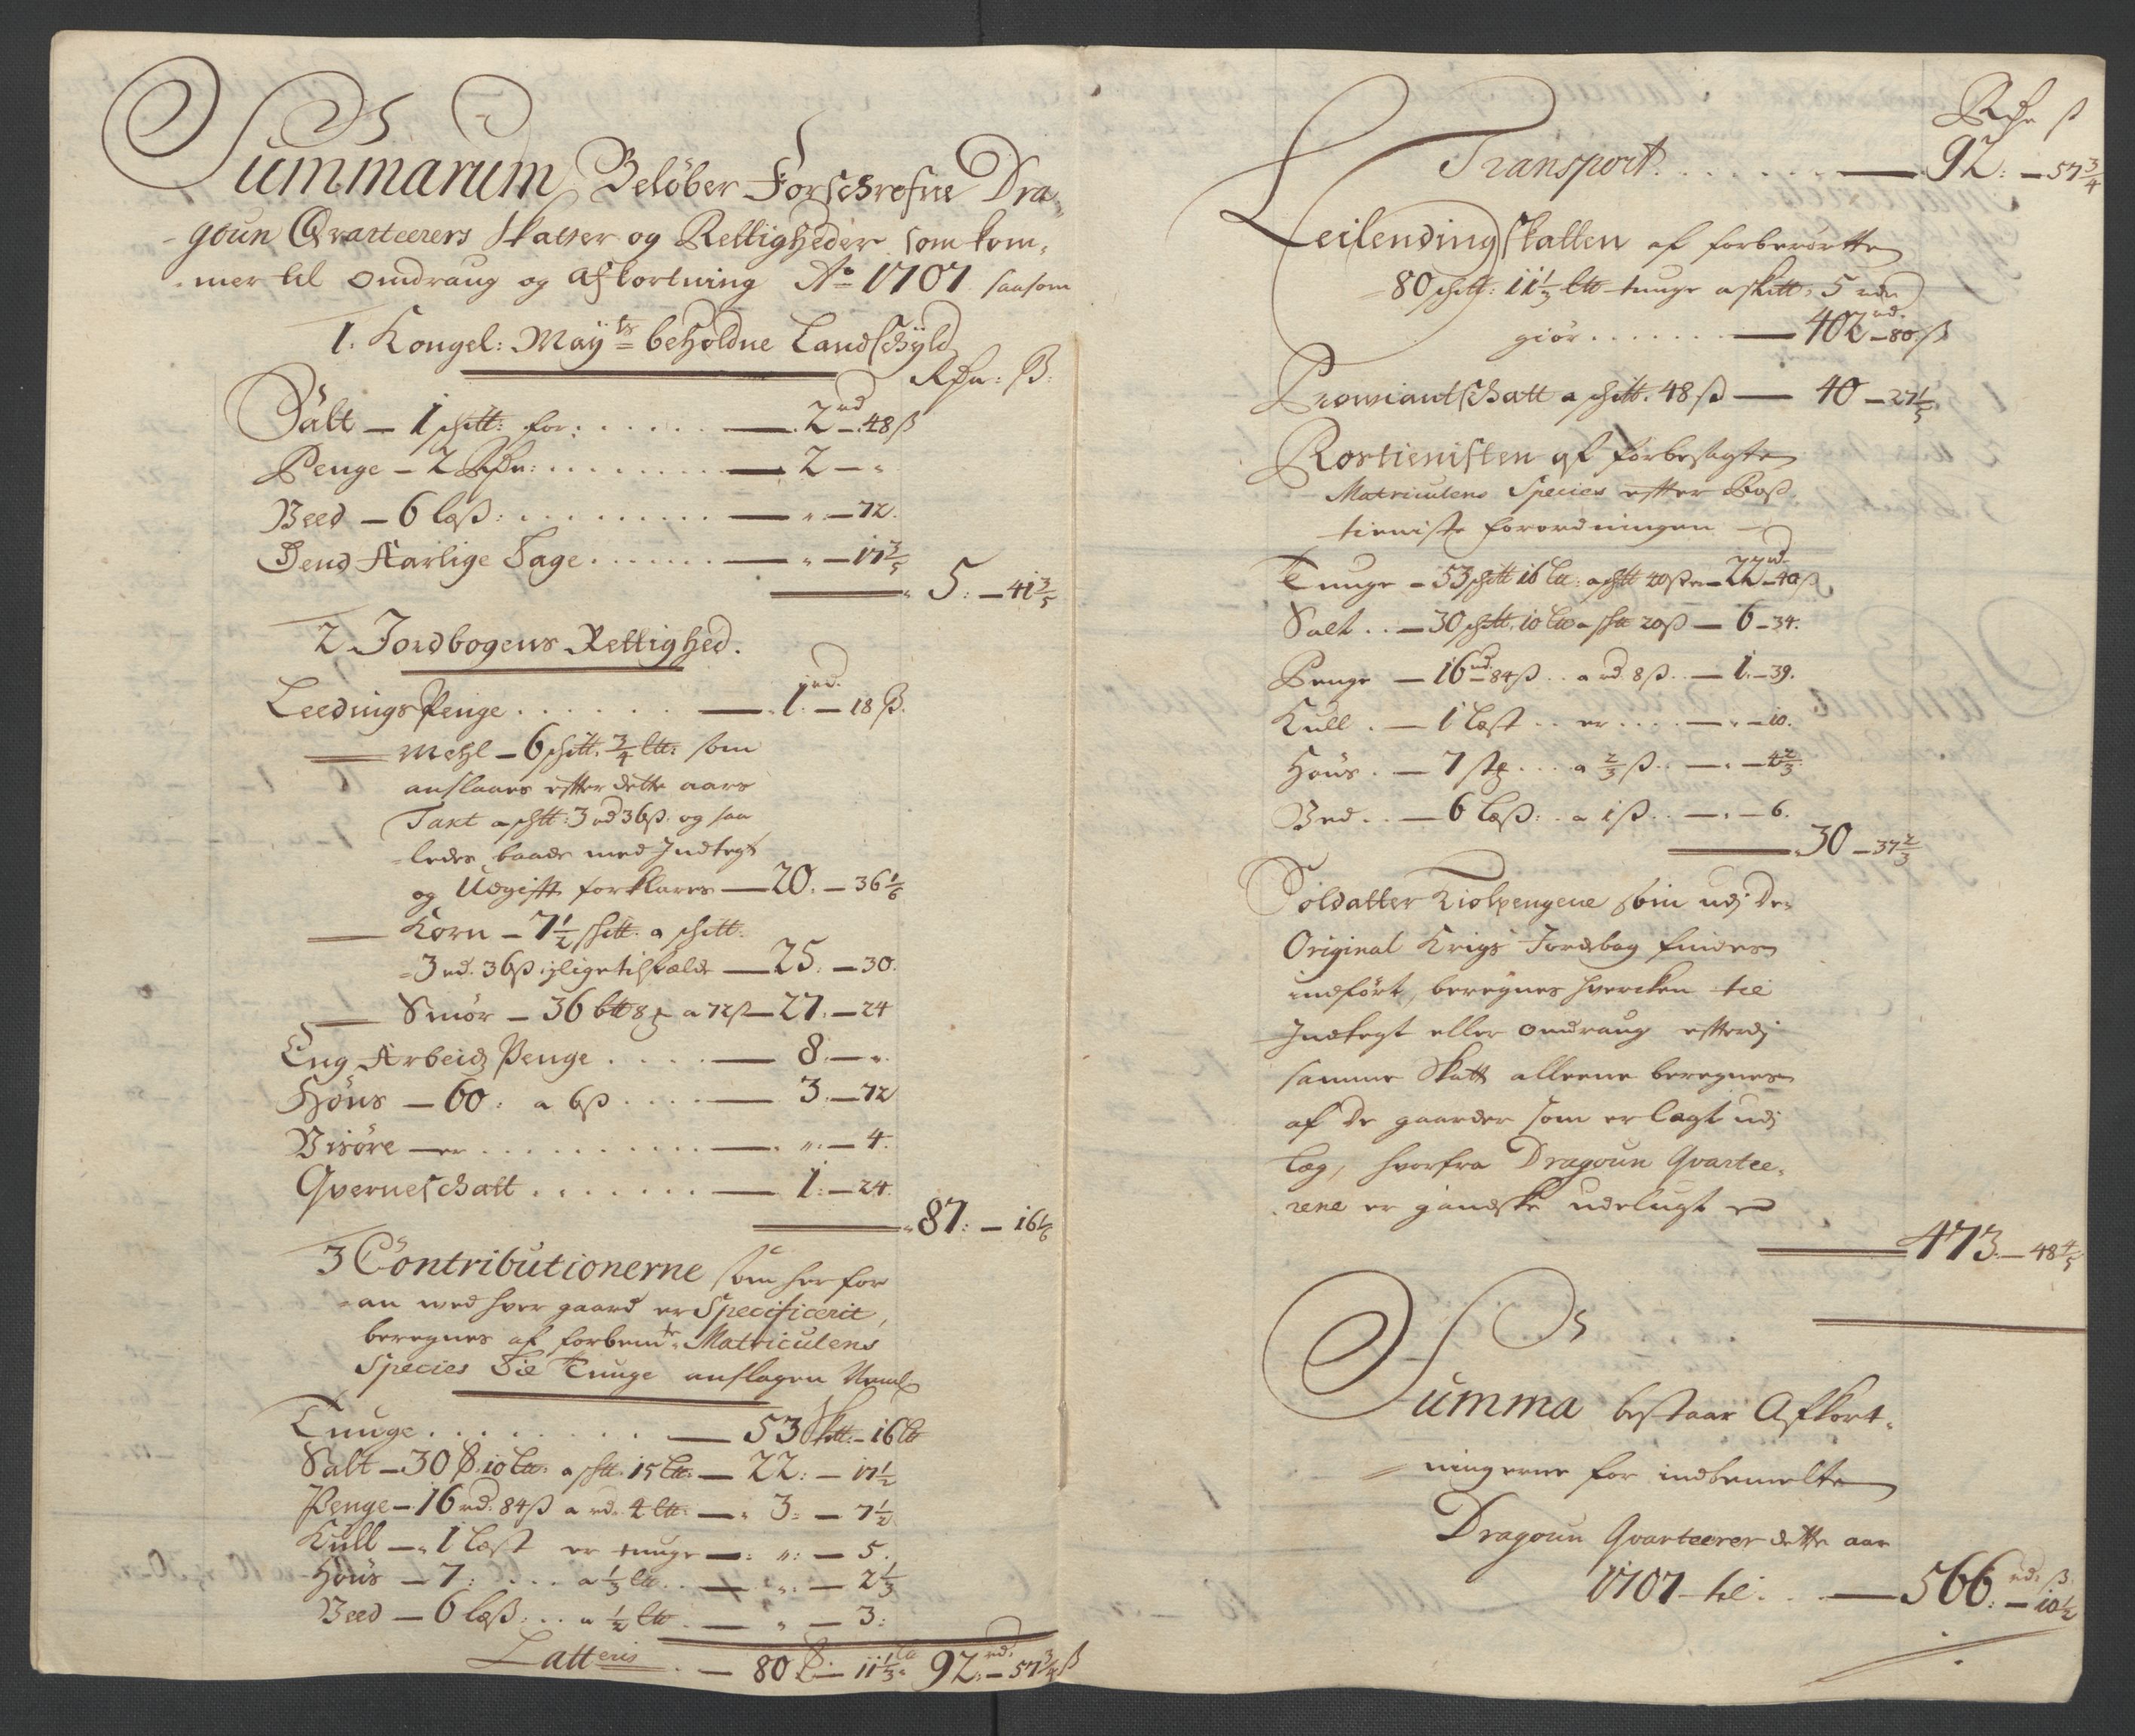 Summarum Beløber Forschrefne Dra-
goun Qvarteerers Skatter og Rettigheder som kom-
mer til omdraug og afkortning Ao 1707 saasom
1. Kongel: Mayts beholdne Landschyld
Rdr: ß:
Salt – 1 schitt: for: . . . . . . – 2 rd – 48 ß
Penge – 2 Rdr: . . . . . . . – 2 – "
Veed – 6 læß: . . . . . . . – " – 72.
Dend Aarlige Tage . . . . . . – " – 17 3/5
5: – 41 3/5
2 Jordbogens Rettighed.
Leedings Penge . . . . . . – 1 rd. – 18 ß.
– Mehl – 6 schitt. 3/4 ltt: som
anslaaes efter dette aars
Taxt a schtt: 3 rd 36 ß. og saa
ledes baade med Indtegt
og Udgift forklares – 20. – 36 1/6
– Korn – 7 1/2 schtt. a schtt.
3 rd. 36 ß – 25. – 30.
– Smør – 36 btt 8 a 72 ß – 27. – 24
Eng Arbeidz Penge . . . . – 8. – "
Høns – 60: a 6 ß . . . . – 3. – 72
Visøre – er . . . . . . . – ". – 4.
Qverneschatt . . . . . . . – 1: – 24.
87: – 16 1/6
3 Contributionerne som her for
an med hver gaard er Specificerit,
beregnes af forbemte Matriculens
Species Til Tunge anslagen Neml:
Tunge . . . . . . . – 53 Schtt. – 16 ltt
Salt – 30 S. 10 ltt: a schtt. 15 ltt: – 22: – 17 1/2
Penge – 16 rd. 84 ß a rd. 4 ltt: – 3: – 7 1/2
Kull – 1 læst er tunge – ": – 5.
Høns – 7: . . . a 1/3 ltt . . – ". – 2 1/3
Veed – 6 læß: . . a 1/2 ltt . – " – 3:
Latteris . – 80 S: – 11 1/3 ltt 92: rd. – 57 3/4 ß
Rdr ß
Transport . . . . . . . – 92: – 57 3/4
Leilending skatten af forberørtte
80 schtt: 11 1/3 ltt tunge a schtt: 5 rdr
giør . . . . . . – 402 rd. – 80 ß
Proviantschatt a schtt. 48 ß – 40 – 27 1/5
Rostienisten af forbesagte
Matriculens Species efter Roß
tieniste forordningen –
Tunge – 53 schtt 16 ltt: a schtt 40 ß er – 22 rd. – 40 ß
Salt . . – 30 schtt. 10 ltt a schtt 20 ß – 6 – 34.
Penge – 16 rd. 84 ß . . a rd. 8 ß . . – 1. – 39.
Kull . – 1 læst . . er . . . . – " – 10.
Høns . – 7 stk . . . a 2/3 ß . . – " – 4 2/3
Ved . . – 6 læß: . . a 1 ß . . – " – 6.
30 – 37 2/3
Soldatter Kiolpengene som udj De
Original Krigs Jordebog findes
indført, beregnes hvercken til
Indtegt eller omdraug efterdj
samme Skatt alleene beregnes
af De gaarder som er lagt udj
Læg, hvorfra Dragoun Qvartee-
rene er gandske udelugt
473. – 48 4/5
Summa bestaar Afkort-
ningerne for indbemelte
Dragoun Qvarteerer dette aar
1707 – til . . . – 566: rd. – 10 1/2 ß.